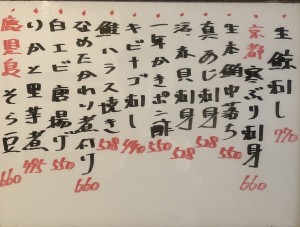 生鮫刺し 770
京都寒ぶり刺身 660
生本鮪中落ち 550
真あじ刺身 528
活赤貝刺身 528
一年かきポン酢 550
キビナゴ刺し 440
鮭ハラス焼き 528
なめたかれい煮付け 660
白エビ唐揚げ 550
いかと里芋煮 495
鹿児島そら豆 660